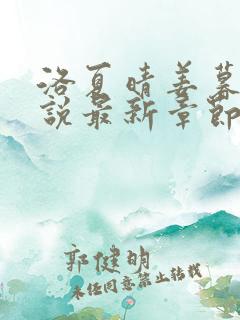 洛夏晴姜暮
说最新章节
郭健明
未经同意禁止转载